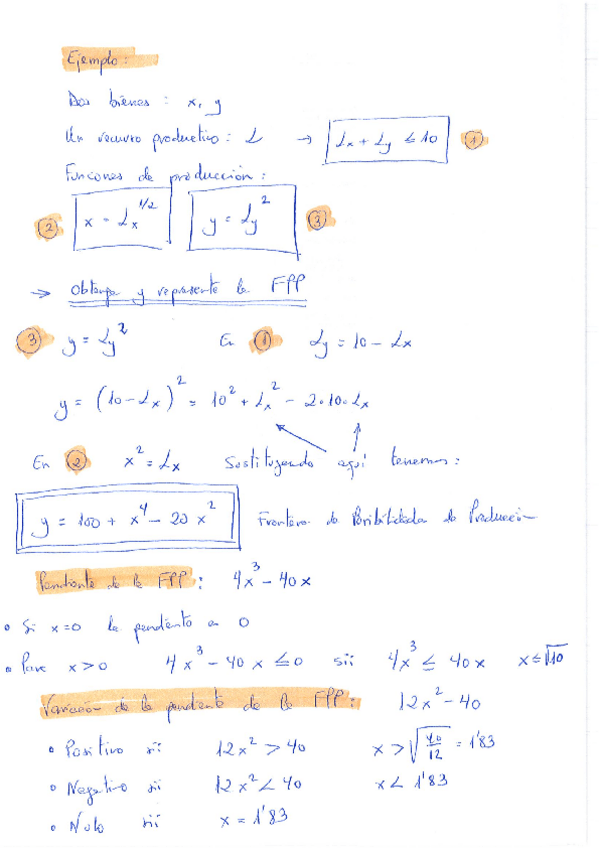 Ejemplo:
Dos bienes: x, y
Un recurso productivo: L → Lx + Ly ≤ 10 ①
Funciones de producción:
② x = Lx^1/2 y = Ly^2 ③
→ Obtenga y represente la FPP
③ y = Ly^2 En ① Ly = 10 - Lx
y = (10 - Lx)^2 = 10^2 + Lx^2 - 2·10·Lx
En ② x^2 = Lx Sustituyendo aquí tenemos:
y = 100 + x^4 - 20x^2 Frontera de Posibilidades de Producción
Pendiente de la FPP: 4x^3 - 40x
• Si x=0 la pendiente es 0
• Para x>0 4x^3 - 40x ≤ 0 sii 4x^3 ≤ 40x x ≤ √10
Variación de la pendiente de la FPP: 12x^2 - 40
• Positivo sii 12x^2 > 40 x > √(40/12) = 1'83
• Negativo sii 12x^2 < 40 x < 1'83
• Nulo sii x = 1'83